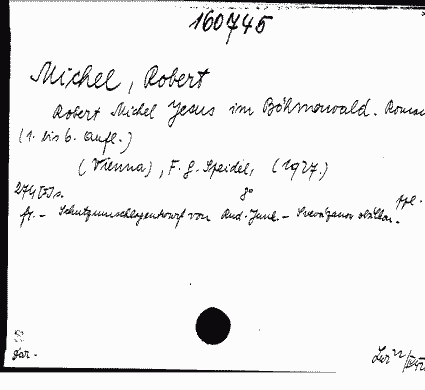 160745
Michel, Robert
Robert Michel Jesus im Böhmerwald. Roman
(1. bis 6. Aufl.)
(Vienna), F. G. Speidel, (1927.)
274 [1] s. 8°
fr. - Schutzumschlagentwurf von Rud. Junk. -
dar.